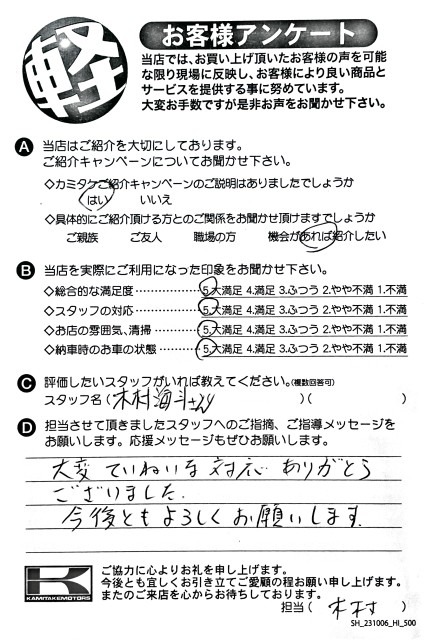 軽
お客様アンケート
当店では、お買い上げ頂いたお客様の声を可能
な限り現場に反映し、お客様により良い商品と
サービスを提供する事に努めています。
大変お手数ですが是非お声をお聞かせ下さい。
A 当店はご紹介を大切にしております。
ご紹介キャンペーンについてお聞かせ下さい。
◇カミタケご紹介キャンペーンのご説明はありましたでしょうか
はい いいえ
◇具体的にご紹介頂ける方とのご関係をお聞かせ頂けますでしょうか
ご親族 ご友人 職場の方 機会があれば紹介したい
B 当店を実際にご利用になった印象をお聞かせ下さい。
◇総合的な満足度‥‥‥‥‥ 5.大満足 4.満足 3.ふつう 2.やや不満 1.不満
◇スタッフの対応‥‥‥‥‥ 5.大満足 4.満足 3.ふつう 2.やや不満 1.不満
◇お店の雰囲気、清掃‥‥‥ 5.大満足 4.満足 3.ふつう 2.やや不満 1.不満
◇納車時のお車の状態‥‥‥ 5.大満足 4.満足 3.ふつう 2.やや不満 1.不満
C 評価したいスタッフがいれば教えてください。(複数回答可)
スタッフ名(木村海斗さん)( )
D 担当させて頂きましたスタッフへのご指摘、ご指導メッセージを
お願いします。応援メッセージもぜひお願いします。
大変 ていねいな 対応 ありがとう
ございました.
今後とも よろしく お願いします.
K
KAMITAKEMOTORS
ご協力に心よりお礼を申し上げます。
今後とも宜しくお引き立てご愛顧の程お願い申し上げます。
またのご来店を心からお待ちしております。
担当( 木村 )
SH_231006_HI_500